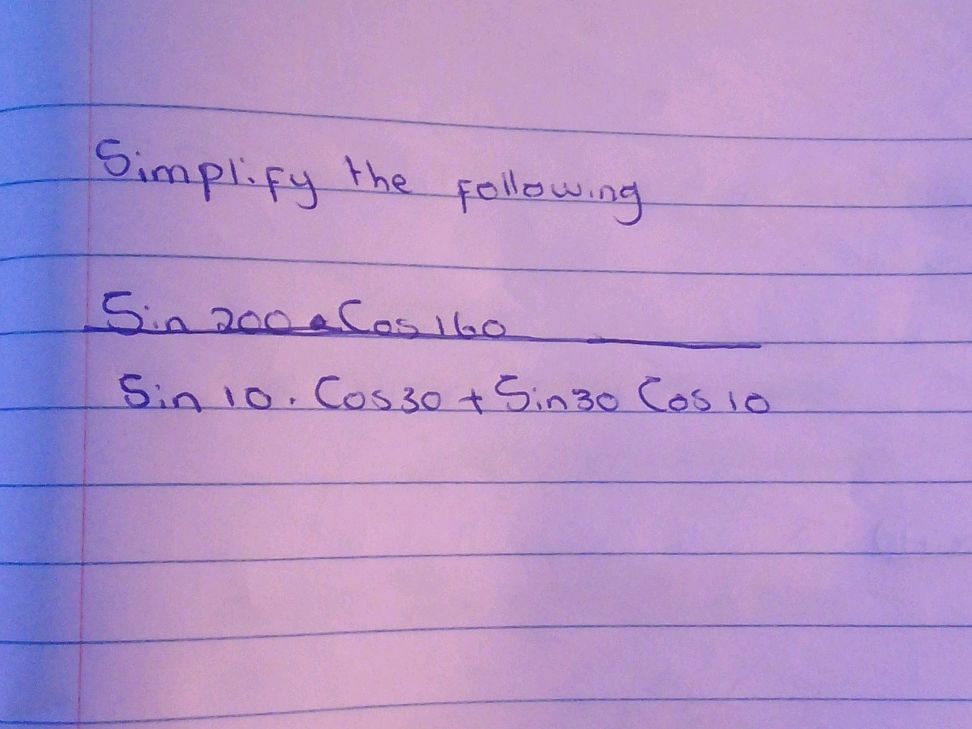 Simplify the following
Sin 200 . Cos 160
Sin 10 . Cos 30 + Sin 30 Cos 10